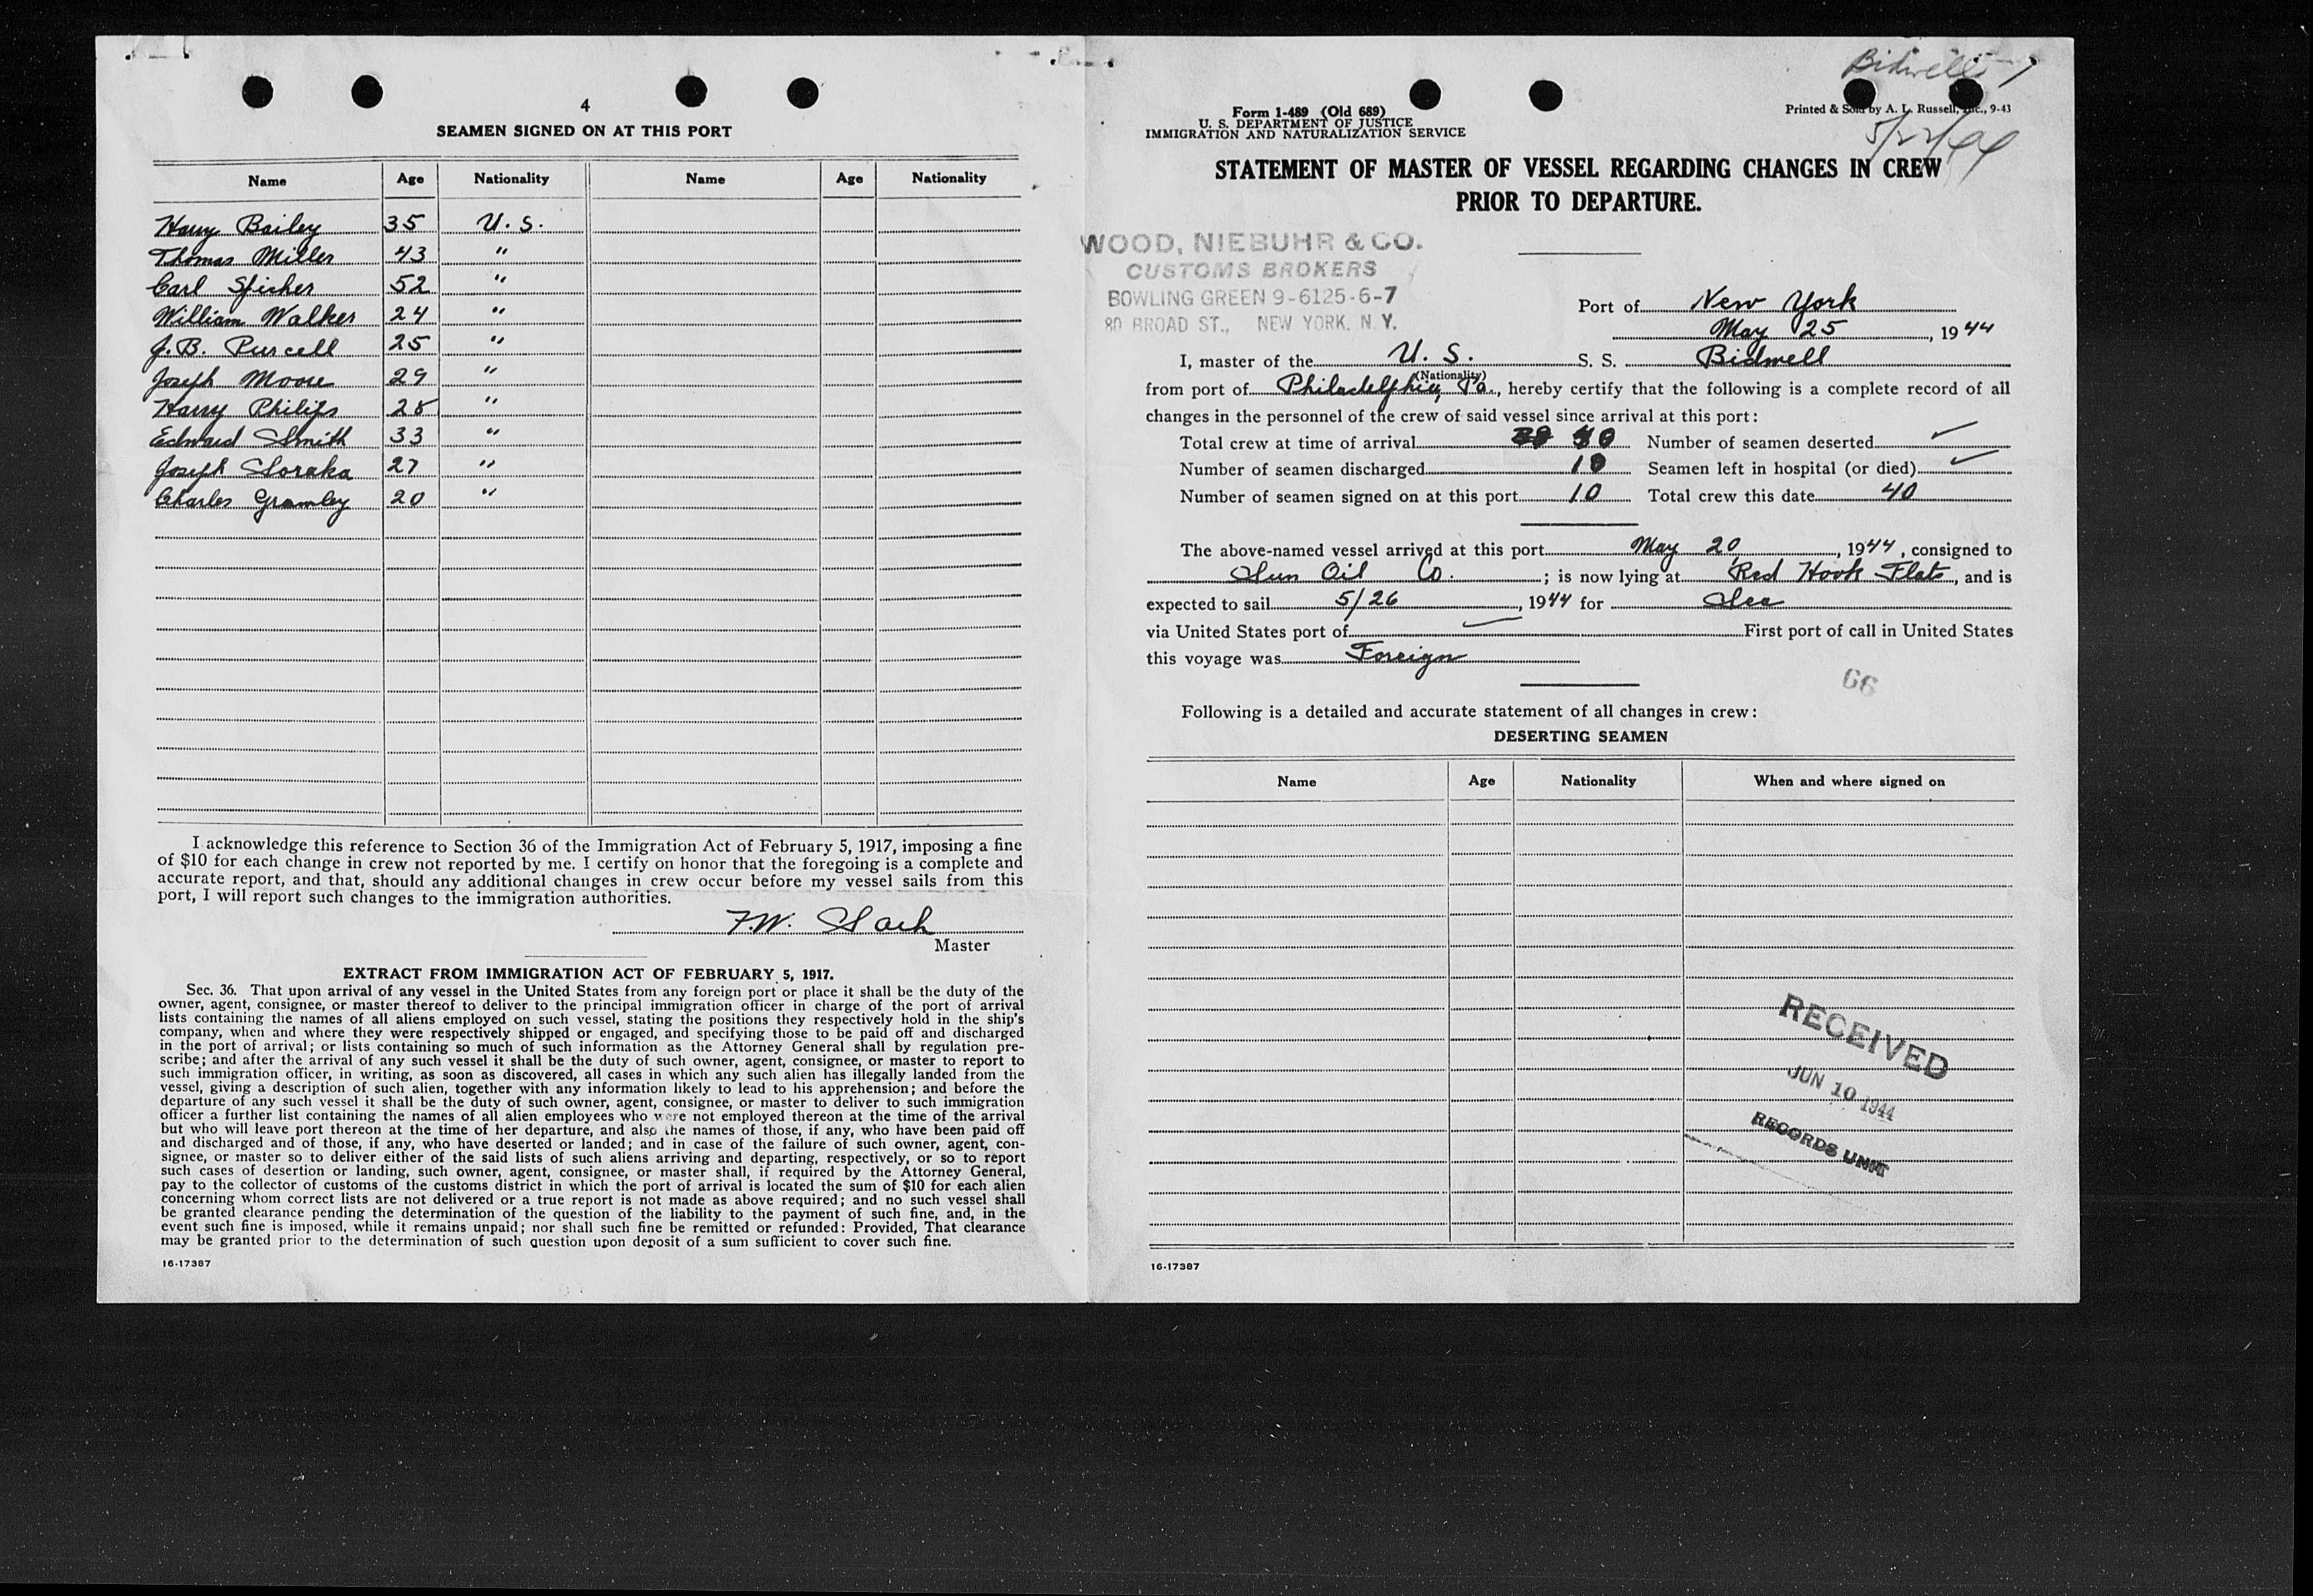 4
SEAMEN SIGNED ON AT THIS PORT
Name Age Nationality Name Age Nationality
Harry Bailey 35 U. S.
Thomas Miller 43 "
Carl Spicher 52 "
William Walker 24 "
J. B. Purcell 25 "
Joseph Moore 29 "
Harry Philips 25 "
Edward Smith 33 "
Joseph Soraka 27 "
Charles Gramley 20 "
I acknowledge this reference to Section 36 of the Immigration Act of February 5, 1917, imposing a fine
of $10 for each change in crew not reported by me. I certify on honor that the foregoing is a complete and
accurate report, and that, should any additional changes in crew occur before my vessel sails from this
port, I will report such changes to the immigration authorities.
F. W.
Master
EXTRACT FROM IMMIGRATION ACT OF FEBRUARY 5, 1917.
Sec. 36. That upon arrival of any vessel in the United States from any foreign port or place it shall be the duty of the
owner, agent, consignee, or master thereof to deliver to the principal immigration officer in charge of the port of arrival
lists containing the names of all aliens employed on such vessel, stating the positions they respectively hold in the ship's
company, when and where they were respectively shipped or engaged, and specifying those to be paid off and discharged
in the port of arrival; or lists containing so much of such information as the Attorney General shall by regulation pre-
scribe; and after the arrival of any such vessel it shall be the duty of such owner, agent, consignee, or master to report to
such immigration officer, in writing, as soon as discovered, all cases in which any such alien has illegally landed from the
vessel, giving a description of such alien, together with any information likely to lead to his apprehension; and before the
departure of any such vessel it shall be the duty of such owner, agent, consignee, or master to deliver to such immigration
officer a further list containing the names of all alien employees who were not employed thereon at the time of the arrival
but who will leave port thereon at the time of her departure, and also the names of those, if any, who have been paid off
and discharged and of those, if any, who have deserted or landed; and in case of the failure of such owner, agent, con-
signee, or master so to deliver either of the said lists of such aliens arriving and departing, respectively, or so to report
such cases of desertion or landing, such owner, agent, consignee, or master shall, if required by the Attorney General,
pay to the collector of customs of the customs district in which the port of arrival is located the sum of $10 for each alien
concerning whom correct lists are not delivered or a true report is not made as above required; and no such vessel shall
be granted clearance pending the determination of the question of the liability to the payment of such fine, and, in the
event such fine is imposed, while it remains unpaid; nor shall such fine be remitted or refunded: Provided, That clearance
may be granted prior to the determination of such question upon deposit of a sum sufficient to cover such fine.
16-17387
Bidwell
Form 1-489 (Old 689)
U. S. DEPARTMENT OF JUSTICE
IMMIGRATION AND NATURALIZATION SERVICE
Printed & Sold by A. L. Russell, Inc., 9-43
STATEMENT OF MASTER OF VESSEL REGARDING CHANGES IN CREW
PRIOR TO DEPARTURE.
WOOD, NIEBUHR & CO.
CUSTOMS BROKERS
BOWLING GREEN 9-6125-6-7
80 BROAD ST., NEW YORK, N. Y.
Port of New York
May 25, 1944
I, master of the U. S. S. S. Bidwell
(Nationality)
from port of Philadelphia, Pa., hereby certify that the following is a complete record of all
changes in the personnel of the crew of said vessel since arrival at this port:
Total crew at time of arrival 40 Number of seamen deserted ✓
Number of seamen discharged 10 Seamen left in hospital (or died) ✓
Number of seamen signed on at this port 10 Total crew this date 40
The above-named vessel arrived at this port May 20, 1944, consigned to
Sun Oil Co. ; is now lying at Red Hook Flats, and is
expected to sail 5/26, 1944 for Sea
via United States port of ✓ First port of call in United States
this voyage was Foreign
66
Following is a detailed and accurate statement of all changes in crew:
DESERTING SEAMEN
Name Age Nationality When and where signed on
RECEIVED
JUN 10 1944
RECORDS UNIT
16-17387